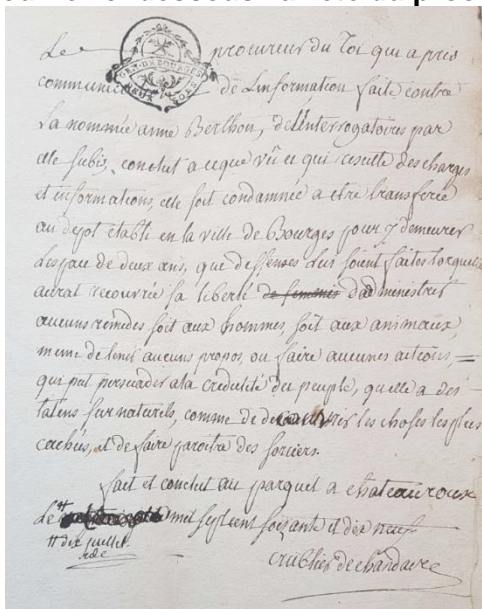 Le procureur du roi qui a pris
communic de Linformation faite contre
La nommée anne Berthon, de L'interrogatoires par
elle subis, conclut a ceque vû ce qui resulte des charges
et informations, elle soit condamnée a etre transferée
au depot établi en la ville de Bourges pour y demeurer
Lespace de deux ans, que deffenses lui soient faites lorquelle
aurat recouvrée sa liberté de femmes d'administrer
aucuns remedes soit aux hommes, soit aux animaux,
meme de tenir aucuns propos, ou faire aucunes actions, =
qui put persuader ala credulité du peuple, quelle a des
talens surnaturels, comme de decouvrir les choses les plus
cachées, et de faire paroitre des sorciers.
fait et conclut au parquet a chateauroux
Le mil sept cent soixante et dix neuf
dix juillet
crublier de chandaire
GEN. DE BOURGES
DEUX SOLS